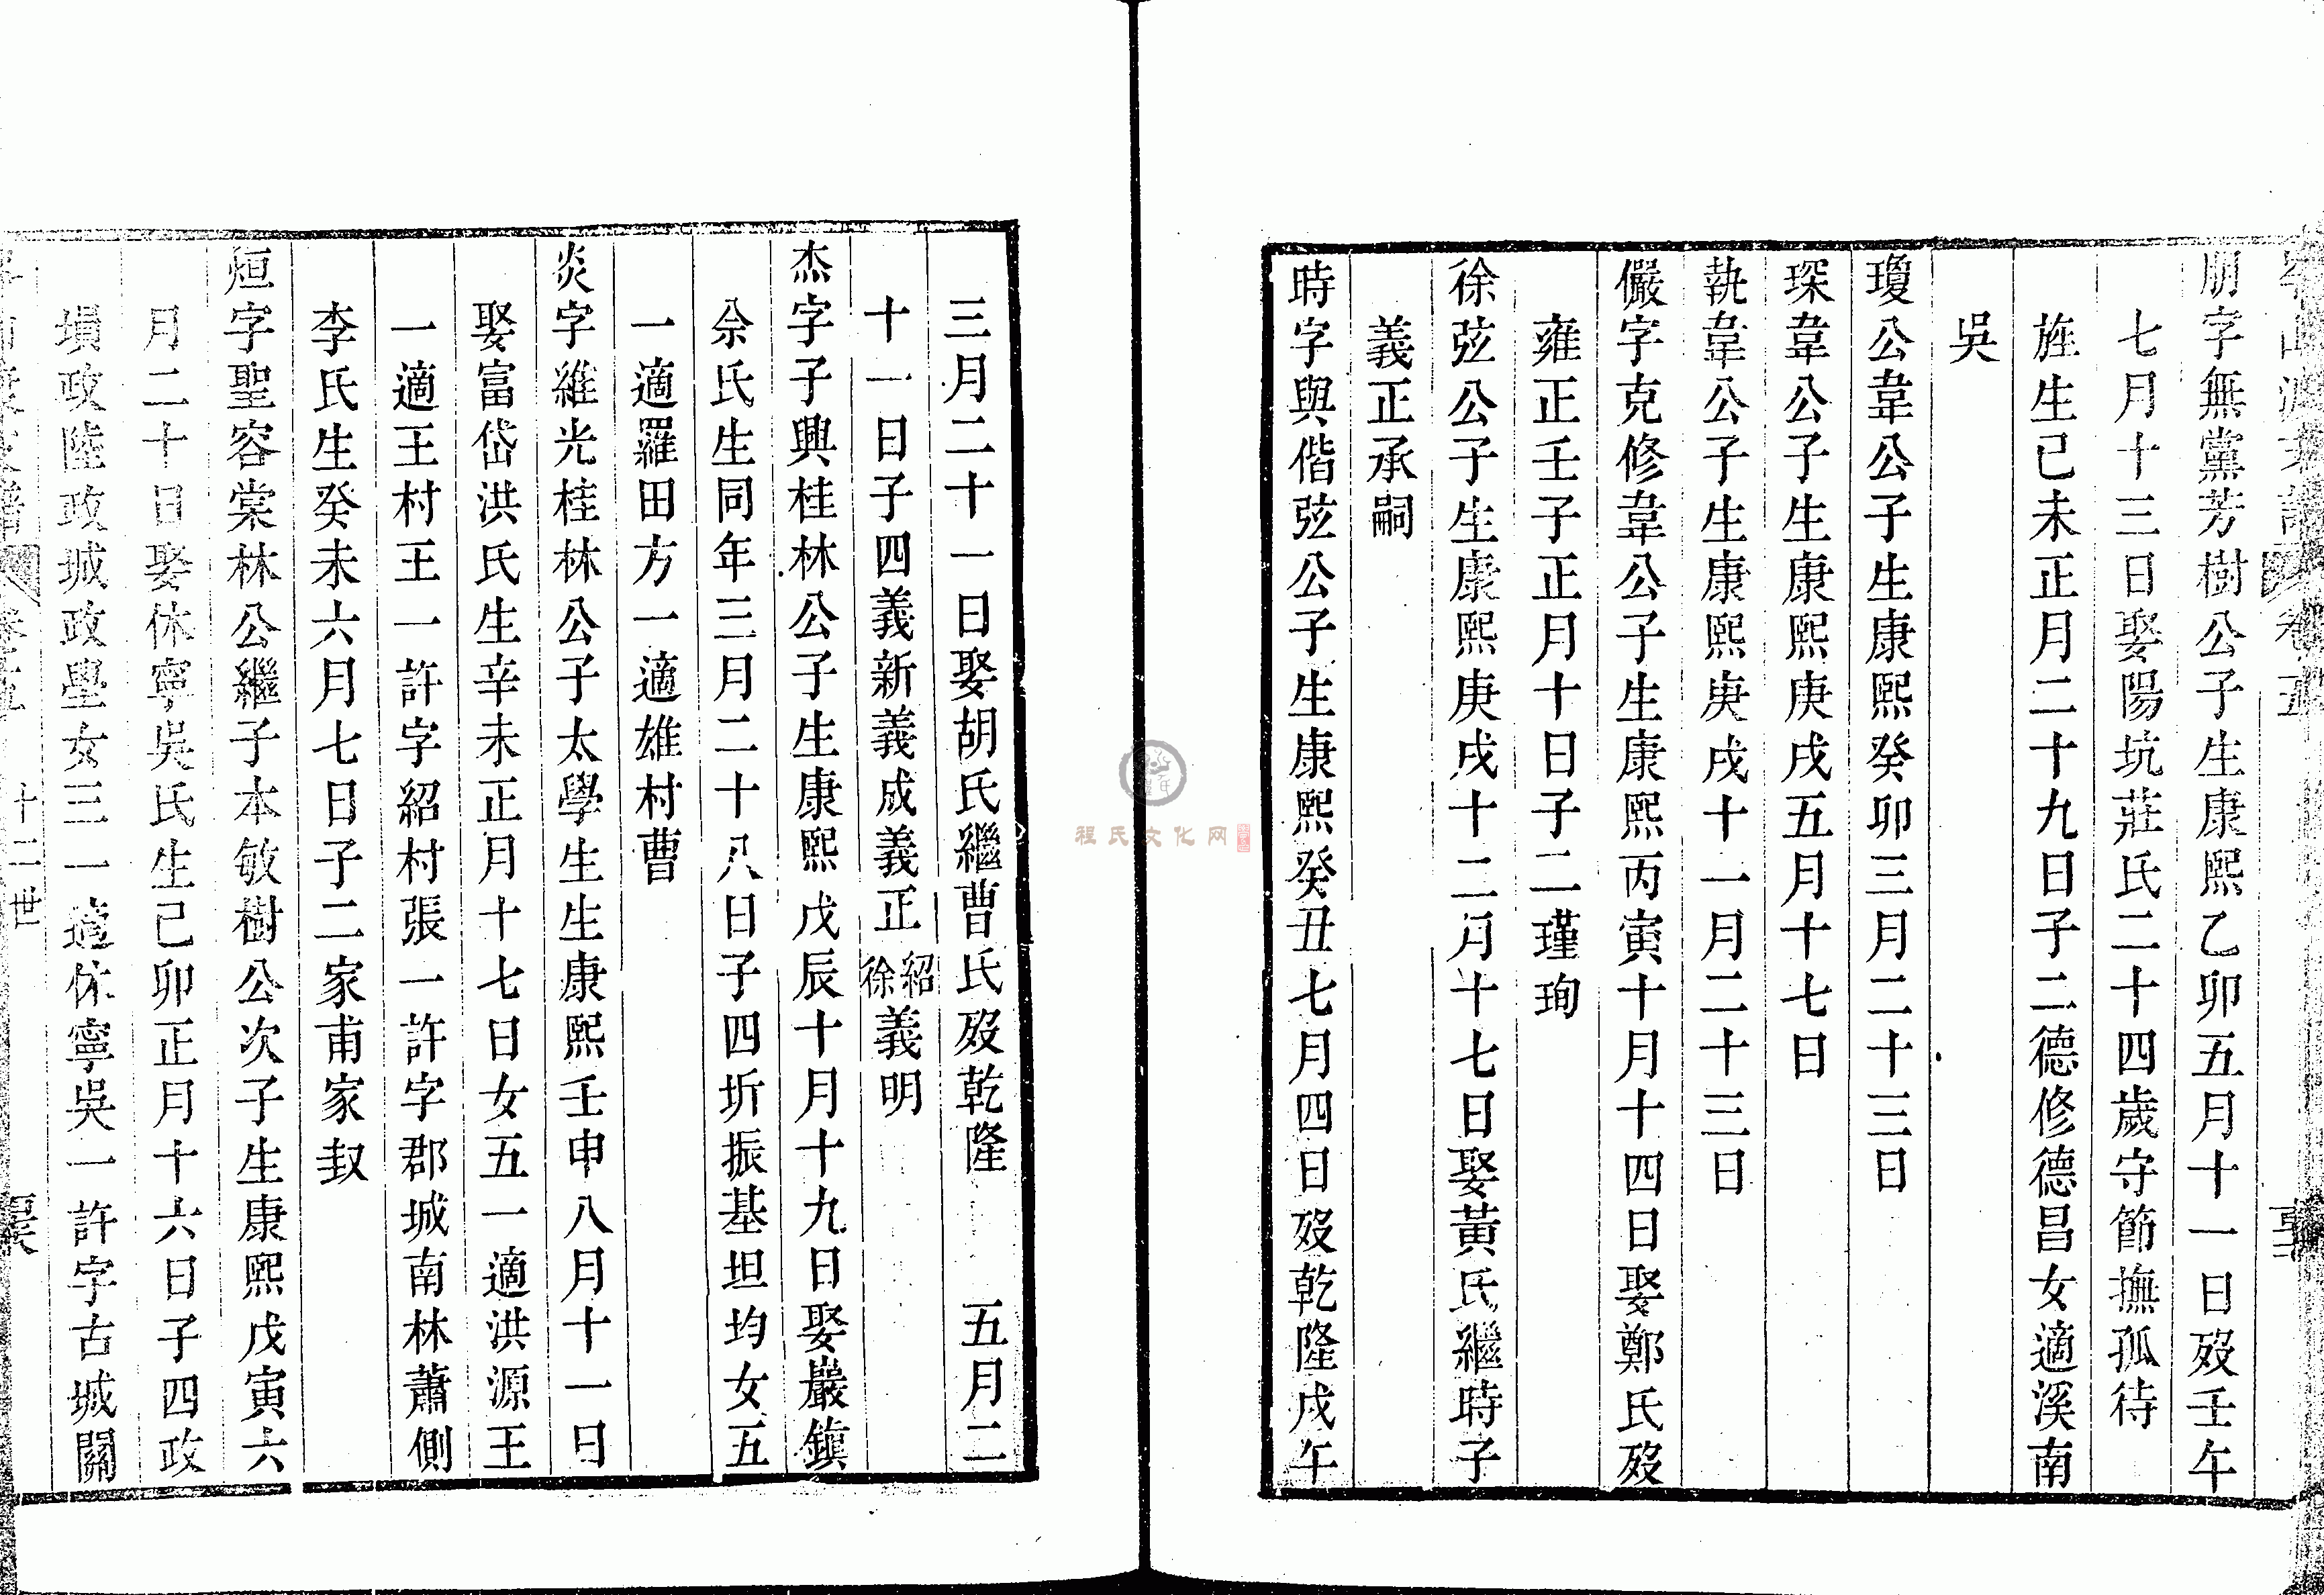 朋字無黨芳樹公子生康熙乙卯五月十一日歿壬午
七月十三日娶陽坑莊氏二十四歲守節撫孤待
旌生己未正月二十九日子二德修德昌女適溪南
吳
瓊公韋公子生康熙癸卯三月二十三日
琛韋公子生康熙庚戌五月十七日
執韋公子生康熙庚戌十一月二十三日
儼字克修韋公子生康熙丙寅十月十四日娶鄭氏歿
雍正壬子正月十日子二瑾珣
徐弦公子生康熙庚戌十二月十七日娶黃氏繼時子
義正承嗣
時字與偕弦公子生康熙癸丑七月四日歿乾隆戌午
三月二十一日娶胡氏繼曹氏歿乾隆 五月二
十一日子四義新義成義正紹徐義明
杰字子興桂林公子生康熙戊辰十月十九日娶巖鎮
佘氏生同年三月二十八日子四圻振基坦均女五
一適羅田方一適雄村曹
炎字維光桂林公子太學生生康熙壬申八月十一日
娶富岱洪氏生辛未正月十七日女五一適洪源王
一適王村王一許字紹村張一許字郡城南林蕭側
李氏生癸未六月七日子二家甫家㪤
烜字聖容棠林公繼子本敏樹公次子生康熙戊寅六
月二十日娶休寧吳氏生己卯正月十六日子四政
塤政陸政城政壆女三一適休寧吳一許字古城關
十二世
程氏文化网